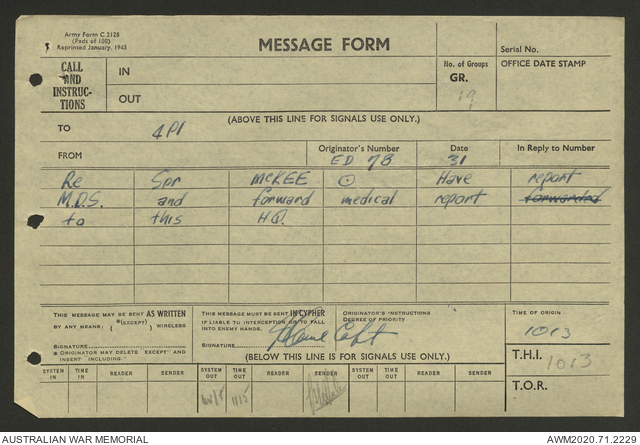 Army Form C.2128
(Pads of 100)
Reprinted January, 1943
MESSAGE FORM
Serial No.
CALL AND INSTRUC-TIONS
IN
OUT
No. of Groups
GR.
19
OFFICE DATE STAMP
(ABOVE THIS LINE FOR SIGNALS USE ONLY.)
TO 4PI
FROM
Originator's Number
ED 78
Date
31
In Reply to Number
Re Spr McKEE ⊙ Have report
M.D.S. and forward medical report forwarded
to this HQ.
THIS MESSAGE MAY BE SENT AS WRITTEN
BY ANY MEANS, *(EXCEPT) WIRELESS
SIGNATURE
* ORIGINATOR MAY DELETE EXCEPT AND
INSERT INCLUDING.
THIS MESSAGE MUST BE SENT IN CYPHER
IF LIABLE TO INTERCEPTION OR TO FALL
INTO ENEMY HANDS.
SIGNATURE Capt
ORIGINATOR'S INSTRUCTIONS
DEGREE OF PRIORITY
TIME OF ORIGIN
1013
T.H.I. 1013
T.O.R.
(BELOW THIS LINE IS FOR SIGNALS USE ONLY.)
SYSTEM IN TIME IN READER SENDER SYSTEM OUT TIME OUT READER SENDER SYSTEM OUT TIME OUT READER SENDER
1115
AUSTRALIAN WAR MEMORIAL
AWM2020.71.2229